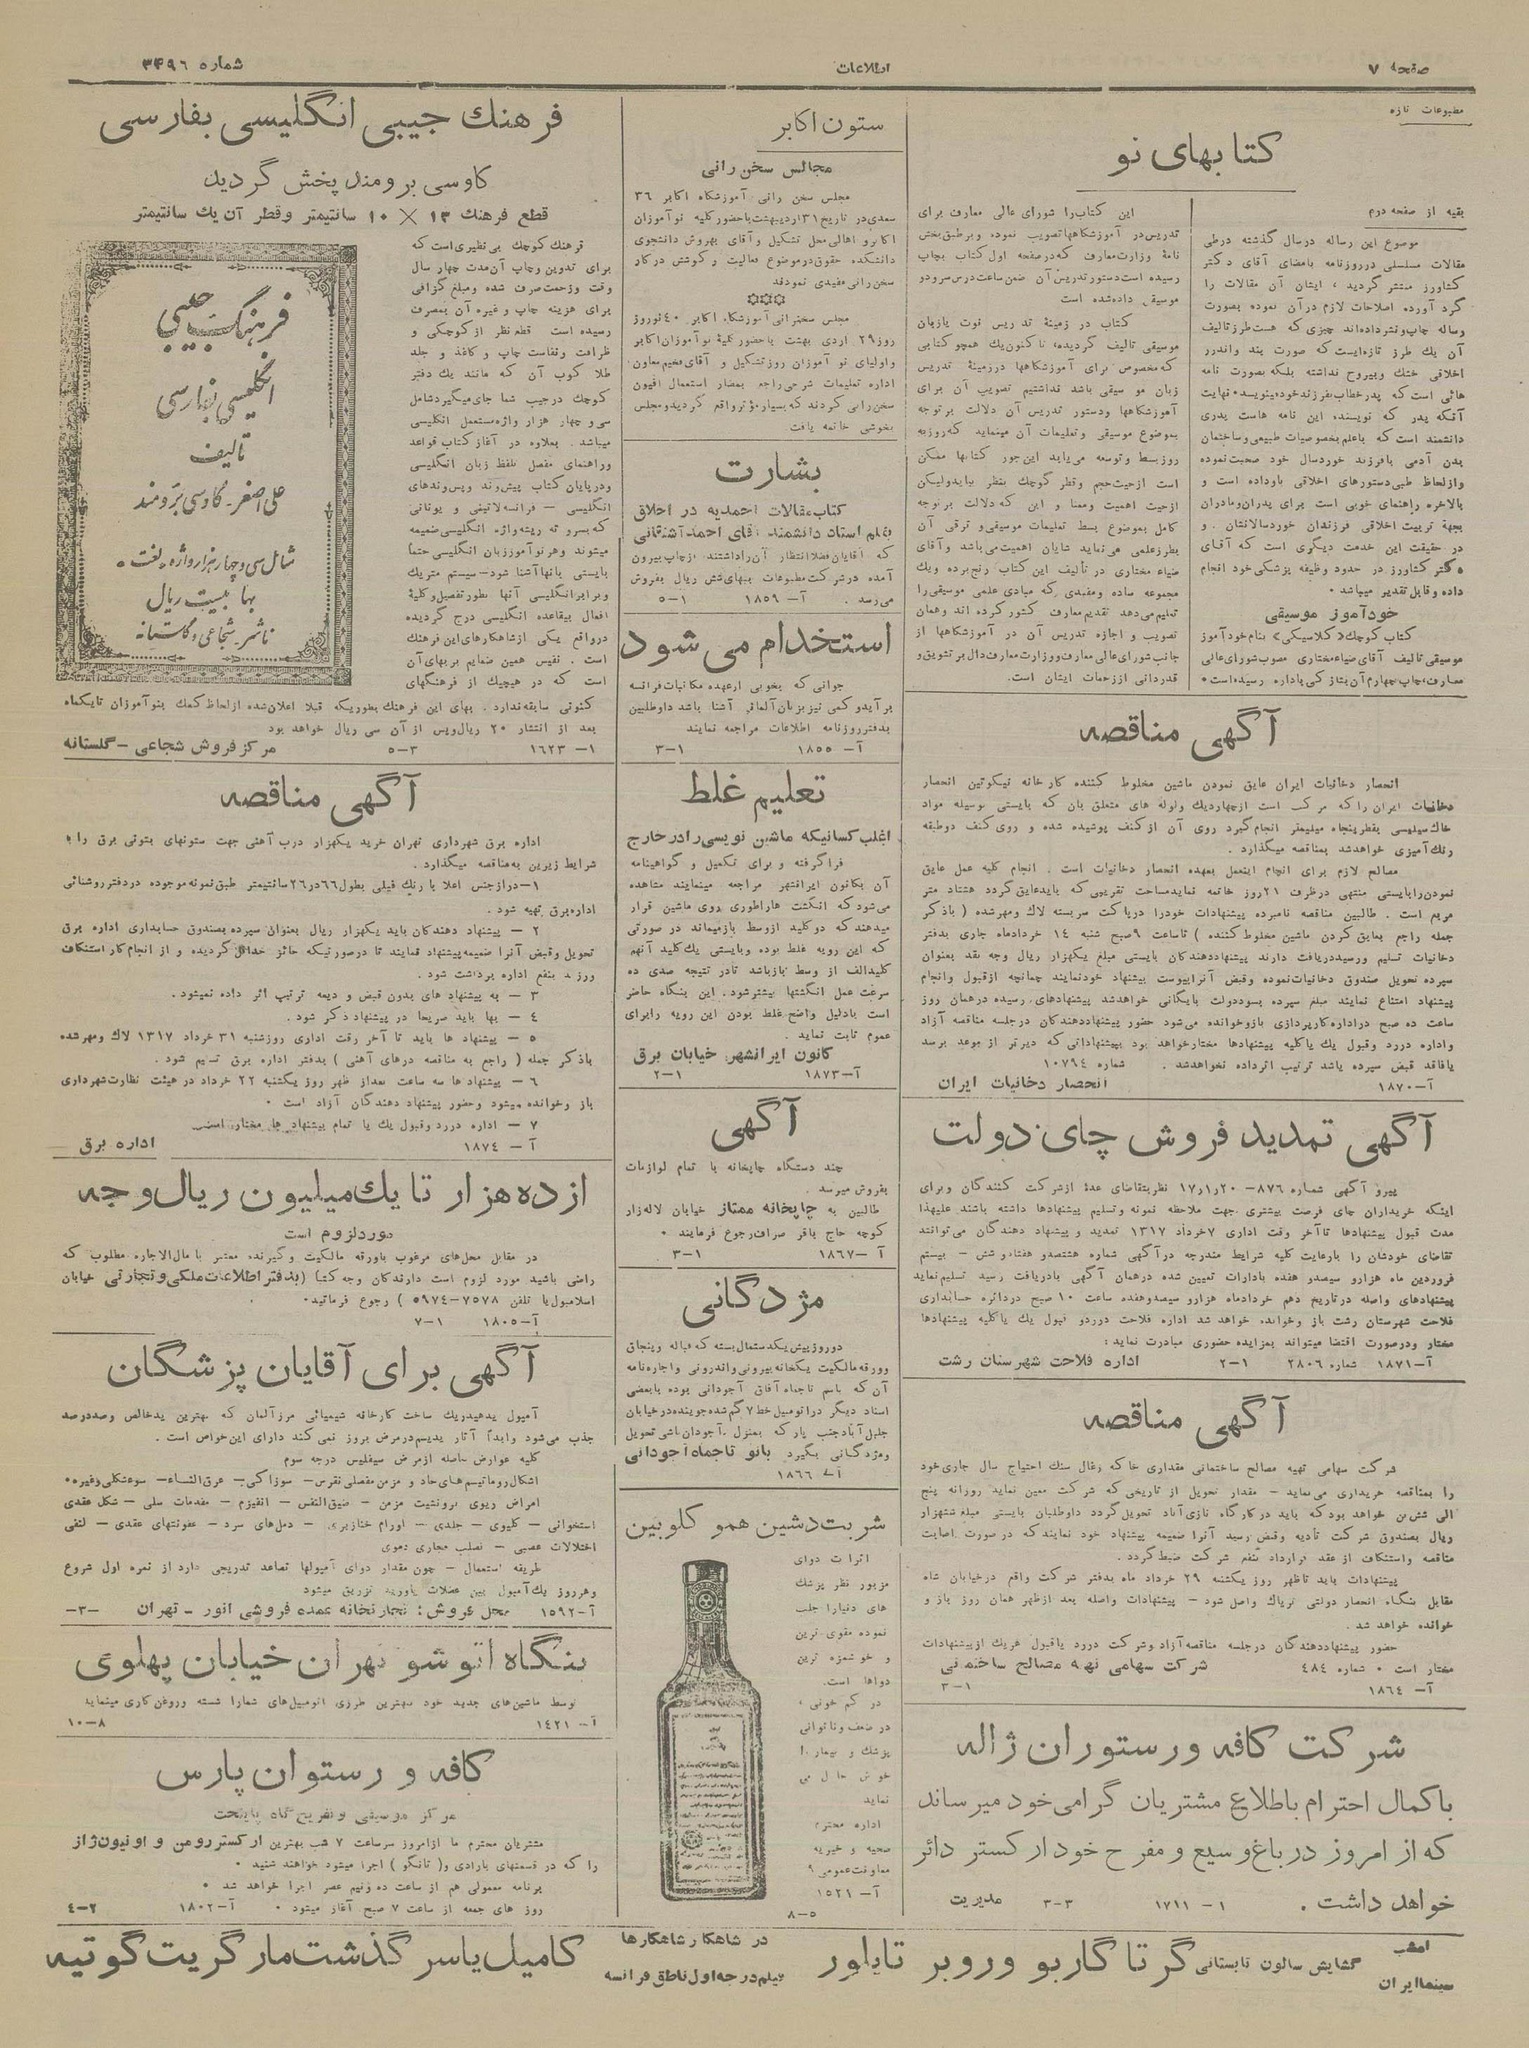 صفحه ۷
اطلاعات
شماره ۳۴۹۶
مطبوعات تازه
کتابهای نو
بقیه از صفحه دوم
موضوع این رساله درسال گذشته درطی
مقالات مسلسلی درروزنامه بامضای آقای دکتر
کشاورز منتشر گردید ، ایشان آن مقالات را
گرد آورده اصلاحات لازم درآن نموده بصورت
رساله چاپ ونشرداده‌اند چیزی که هست‌طرز تالیف
آن یك طرز تازه‌ایست‌که صورت پند واندرز
اخلاقی خشك وبیروح نداشته بلکه بصورت نامه
هائی است‌که پدرخطاب بفرزندخودمینویسد نهایت
آنکه پدر که نویسنده این نامه هاست پدری
دانشمند است‌که باعلم بخصوصیات طبیعی وساختمان
بدن آدمی بافرزند خوردسال خود صحبت‌نموده
وازلحاظ طبی‌دستورهای اخلاقی باوداده است و
بالاخره راهنمای خوبی است برای پدران‌ومادران
بجهة تربیت اخلاقی فرزندان خوردسالشان . و
در حقیقت این خدمت دیگری است که آقای
دکتر کشاورز در حدود وظیفه پزشکی خود انجام
داده وقابل تقدیر میباشد .
خودآموز موسیقی
کتاب کوچك «کلاسیکی» بنام خود آموز
موسیقی تالیف آقای ضیاء مختاری مصوب شورای‌عالی
معارف،چاپ‌چهارم آن بتازکی باداره رسیده‌است •
این کتاب‌را شورای عالی معارف برای
تدریس‌در آموزشگاهها تصویب نموده وبرطبق‌بخش
نامهٔ وزارت‌معارف که‌درصفحه اول کتاب بچاپ
رسیده است‌دستور تدریس‌آن ضمن ساعت‌درس سرودو
موسیقی داده‌شده است
کتاب در زمینهٔ تدریس نوت یازبان
موسیقی تالیف گردیده، تاکنون‌یك همچو کتابی
که‌مخصوص برای آموزشگاهها درزمینهٔ تدریس
زبان مو سیقی باشد نداشتیم تصویب آن برای
آموزشگاهها ودستور تدریس آن دلالت برتوجه
بموضوع موسیقی وتعلیمات آن مینماید که‌روزبه
روزبسط وتوسعه می‌یابد این‌جور کتابها ممکن
است ازحیث‌حجم وقطر کوچك بنظر بیایدولیکن
ازحیث اهمیت ومعنا و این که‌دلالت برتوجه
کامل بموضوع بسط تعلیمات موسیقی‌و ترقی آن
بطرزعلمی می‌نماید شایان اهمیت‌می‌باشد وآقای
ضیاء مختاری در تألیف این کتاب رنج‌برده ویك
مجموعه ساده ومفیدی که مبادی علمی موسیقی‌را
تعلیم‌می‌دهد تقدیم معارف کشور کرده اند وهمان
تصویب و اجازه تدریس آن در آموزشگاهها از
جانب شورای‌عالی معارف‌ووزارت‌معارف دال برتشویق‌و
قدردانی اززحمات ایشان است.
آگهی مناقصه
انحصار دخانیات ایران عایق نمودن ماشین مخلوط کننده کارخانه نیکوتین انحصار
دخانیات ایران‌را که مرکب است ازچهاردیك ولوله های متعلق بآن که بایستی بوسیله مواد
خاك‌سیلیسی بقطرپنجاه میلیمتر انجام‌گیرد روی آن از کنف پوشیده شده و روی کنف دوطبقه
رنك‌آمیزی خواهدشد بمناقصه میگذارد .
مصالح لازم برای انجام اینعمل بعهده انحصار دخانیات است . انجام کلیه عمل عایق
نمودن‌رابایستی منتهی درظرف ۲۱روز خاتمه نمایدمساحت تقریبی که بایدعایق گردد هشتاد متر
مربع است . طالبین مناقصه نامبرده پیشنهادات خودرا درپاکت سربسته لاك ومهرشده ( باذکر
جمله راجع بعایق کردن ماشین مخلوط‌کننده ) تاساعت ۹صبح شنبه ۱۴ خردادماه جاری بدفتر
دخانیات تسلیم ورسیددریافت دارند پیشنهاددهندگان بایستی مبلغ یکهزار ریال وجه نقد بعنوان
سپرده تحویل صندوق دخانیات‌نموده وقبض آنراپیوست پیشنهاد خودنمایند چنانچه ازقبول وانجام
پیشنهاد امتناع نمایند مبلغ سپرده بسوددولت بایگانی خواهدشد پیشنهادهای رسیده درهمان روز
ساعت ده صبح دراداره‌کارپردازی بازوخوانده می‌شود حضور پیشنهاددهندگان درجلسه مناقصه آزاد
واداره دررد وقبول یك یاکلیه پیشنهادها مختارخواهد بود بپیشنهاداتی که دیرتر از موعد برسد
یافاقد قبض سپرده باشد ترتیب اثرداده نخواهدشد . شماره ۱۰۷۹۴
آ—۱۸۷۰ انحصار دخانیات ایران
آگهی تمدید فروش چای دولت
پیرو آگهی شماره ۸۷۶— ۱۷٫۱٫۲۰ نظربتقاضای عدهٔ ازشرکت کنندگان وبرای
اینکه خریداران چای فرصت بیشتری جهت ملاحظه نمونه وتسلیم پیشنهادها داشته باشند علیهذا
مدت قبول پیشنهادها تاآخر وقت اداری ۷خرداد ۱۳۱۷ تمدید و پیشنهاد دهندگان می‌توانند
تقاضای خودشان را بارعایت کلیه شرایط مندرجه درآگهی شماره هشتصدو هفتادوشش — بیستم
فروردین ماه هزارو سیصدو هفده بادارات تعیین شده درهمان آگهی بادریافت رسید تسلیم‌نماید
پیشنهادهای واصله درتاریخ دهم خردادماه هزارو سیصدوهفده ساعت ۱۰ صبح دردائره حسابداری
فلاحت شهرستان رشت باز وخوانده خواهد شد اداره فلاحت دررد‌و قبول یك یاکلیه پیشنهادها
مختار ودرصورت اقتضا میتواند بمزایده حضوری مبادرت نماید؛
آ—۱۸۷۱ شماره ۲۸۰۶ ۱—۲ اداره فلاحت شهرستان رشت
آگهی مناقصه
شرکت سهامی تهیه مصالح ساختمانی مقداری خاکه زغال سنك احتیاج سال جاری‌خود
را بمناقصه خریداری می‌نماید — مقدار تحویل از تاریخی که شرکت معین نماید روزانه پنج
الی شش‌تن خواهد بودکه باید درکارگاه نازی‌آباد تحویل‌گردد داوطلبان بایستی مبلغ ششهزار
ریال بصندوق شرکت تادیه وقبض رسید آنرا ضمیمه پیشنهاد خود نمایندکه درصورت اصابت
مناقصه واستنکاف از عقد قرارداد بنفع شرکت ضبط‌گردد .
پیشنهادات باید تاظهر روز یکشنبه ۲۹ خرداد ماه بدفتر شرکت واقع درخیابان شاه
مقابل بنگاه انحصار دولتی تریاك واصل شود — پیشنهادات واصله بعد ازظهر همان روز باز و
خوانده خواهد شد .
حضور پیشنهاددهندگان درجلسه مناقصه‌آزاد وشرکت دررد یاقبول هریك ازپیشنهادات
مختار است • شماره ۴۸۴ شرکت سهامی تهیه مصالح ساختمانی
آ— ۱۸۶۴ ۱—۳
شرکت کافه ورستوران ژاله
باکمال احترام باطلاع مشتریان گرامی‌خود میرساند
که از امروز درباغ‌وسیع و مفرح خود ارکستر دائر
خواهد داشت . ۱— ۱۷۱۱ ۳—۳ مدیریت
ستون اکابر
مجالس سخن رانی
مجلس سخن رانی آموزشگاه اکابر ۳۶
سعدی‌در تاریخ ۳۱ اردیبهشت‌باحضورکلیه نوآموزان
اکابر‌و اهالی‌محل تشکیل وآقای بهروش دانشجوی
دانشکده حقوق‌درموضوع فعالیت وکوشش درکار
سخن‌رانی مفیدی نمودند
مجلس سخنرانی آموزشگاه اکابر ۴۰نوروز
روز ۲۹ اردی بهشت باحضور کلیهٔ نوآموزان‌اکابر
واولیای نو آموزان روزتشکیل و آقای فخیم معاون
اداره تعلیمات شرحی‌راجع بمضار استعمال افیون
سخن‌رانی کردند که‌بسیارمؤثرواقع گردیدومجلس
بخوشی خاتمه یافت.
بشارت
کتاب مقالات احمدیه در اخلاق
بقلم استاد دانشمند آقای احمدآشتیانی
که آقایان‌فضلاانتظار آن‌راداشتند ازچاپ‌بیرون
آمده درشرکت‌مطبوعات ببهای‌شش ریال بفروش
می‌رسد . آ— ۱۸۵۹ ۱—۵
استخدام می‌شود
جوانی که بخوبی ازعهده مکاتبات فرانسه
برآیدو کمی نیزبزبان آلمانی آشنا باشد داوطلبین
بدفترروزنامه اطلاعات مراجعه نمایند
آ— ۱۸۵۵ ۱—۳
تعلیم غلط
اغلب کسانیکه ماشین نویسی رادرخارج
فراگرفته و برای تکمیل و گواهینامه
آن بکانون ایرانشهر مراجعه مینمایند مشاهده
می‌شودکه انگشت هاراطوری روی ماشین قرار
میدهندکه دوکلید ازوسط بازمیماند در صورتی
که این رویه غلط بوده وبایستی یك‌کلید آنهم
کلیدالف از وسط بازباشد تادر نتیجه صدی ده
سرعت عمل انگشتها بیشترشود . این بنگاه حاضر
است بادلیل واضح‌غلط بودن این رویه رابرای
عموم ثابت نماید .
کانون ایرانشهر خیابان برق
آ—۱۸۷۳ ۱—۲
آگهی
چند دستگاه چاپخانه با تمام لوازمات
بفروش میرسد .
طالبین به چاپخانه ممتاز خیابان لاله‌زار
کوچه حاج باقر صراف‌رجوع فرمایند •
آ —۱۸۶۷ ۱—۳
مژدگانی
دوروزپیش‌یکدستمال‌بسته که‌قباله وبنچاق
وورقه‌مالکیت یکخانه‌بیرونی‌واندرونی واجاره‌نامه
آن که باسم تاجماه‌آفاق آجودانی بوده بابعضی
اسناد دیگر دراتومبیل‌خط ۷ گم‌شده‌جوینده‌درخیابان
جلیل‌آبادجنب پارك بمنزل آجودان‌باشی‌تحویل
ومژدگانی بگیرد بانو تاجماه آجودانی
آ— ۱۸۶۶
شربت‌دشین همو کلوبین
اثرات دوای
مزبور نظر پزشك
های دنیارا جلب
نموده مقوی ترین
و خوشمزه ترین
دواها است.
در کم خونی ،
در ضعف وناتوانی
پزشك و بیمار را
خوش حال می
نماید
اداره محترم
صحیه و خیریه
معاونت‌عمومی ۹
آ— ۱۵۲۱
۵—۸
فرهنك جیبی انگلیسی بفارسی
کاوسی برومند پخش گردید
قطع فرهنك ۱۳ × ۱۰ سانتیمتر وقطر آن‌یك سانتیمتر
فرهنگ جیبی
انگلیسی بفارسی
تالیف
علی اصغر - کاوسی برومند
شامل سی‌وچهارهزار واژه «لغت»
بها بیست ریال
ناشر - شجاعی وگلستانه
فرهنك کوچك بی‌نظیری‌است که
برای تدوین وچاپ آن‌مدت چهار سال
وقت وزحمت‌صرف شده ومبلغ گزافی
برای هزینه چاپ وغیره آن بمصرف
رسیده است قطع‌نظر ازکوچکی و
ظرافت ونفاست چاپ و کاغذ و جلد
طلا کوب آن که مانند یك دفتر
کوچك درجیب شما جای‌میگیردشامل
سی‌و چهار هزار واژه‌مستعمل انگلیسی
میباشد . بعلاوه در آغاز کتاب قواعد
وراهنمای مفصل تلفظ زبان انگلیسی
ودرپایان کتاب پیش‌وند وپس‌وندهای
انگلیسی — فرانسه‌لاتینی و یونانی
که‌بسر‌و ته ریشه‌واژه انگلیسی‌ضمیمه
میشوند وهرنوآموزز‌بان انگلیسی‌حتماً
بایستی بآنها آشنا شود— سیستم متریك
وبرابرانگلیسی آنها بطور تفصیل‌وکلیهٔ
افعال بیقاعده انگلیسی درج گردیده
درواقع یکی ازشاهکارهای‌این فرهنك
است . نفیس همین ضمایم پربهای آن
است که در هیچیك از فرهنگهای
کنونی سابقه‌ندارد . بهای این فرهنك بطوریکه قبلا اعلان‌شده ازلحاظ کمك بنوآموزان تایکماه
بعد از انتشار ۲۰ ریال‌وپس از آن سی ریال خواهد بود
۱— ۱۶۲۳ ۳—۵ مرکز فروش شجاعی - گلستانه
آگهی مناقصه
اداره برق شهرداری تهران خرید یکهزار درب آهنی جهت ستونهای بتونی برق را به
شرایط زیرین به‌مناقصه میگذارد .
۱—درازجنس اعلا با رنك قیلی بطول۶۶در۲۶سانتیمتر طبق‌نمونه‌موجوده دردفترروشنائی
اداره‌برق تهیه شود .
۲ — پیشنهاد دهندگان باید یکهزار ریال بعنوان سپرده‌بصندوق حسابداری اداره برق
تحویل وقبض آنرا ضمیمه‌پیشنهاد نمایند تا درصورتیکه حائز حداقل گردیده و از انجام‌کار استنکاف
ورزند بنفع اداره برداشت شود .
۳ — به پیشنهاد های بدون قبض و دیعه ترتیب اثر داده نمیشود .
۴ — بها باید صریحا در پیشنهاد ذکر شود .
۵ — پیشنهاد ها باید تا آخر رقت اداری روزشنبه ۳۱ خرداد ۱۳۱۷ لاك ومهرشده
باذکر جمله ( راجع به مناقصه درهای آهنی ) بدفتر اداره برق تسلیم شود .
۶ — پیشنهاد ها سه ساعت بعداز ظهر روز یکشنبه ۲۲ خرداد در هیئت نظارت‌شهرداری
باز وخوانده میشود وحضور پیشنهاد دهندگان آزاد است •
۷ — اداره دررد وقبول یك یا تمام پیشنهاد ها مختار است.
آ— ۱۸۷۴ اداره برق
ازده‌هزار تا یك‌میلیون ریال‌وجه
موردلزوم است
در مقابل محل‌های مرغوب باورقه مالکیت وگیرنده معتبر با مال‌الاجاره مطلوب که
راضی باشید مورد لزوم است دارندگان وجه کتبا (بدفتر اطلاعات‌ملکی‌و تجارتی خیابان
اسلامبول‌یا تلفن ۷۵۷۸—۵۹۷۴ ) رجوع فرمایند•
آ—۱۸۰۵ ۱—۷
آگهی برای آقایان پزشگان
آمپول یدهیدریك ساخت کارخانه شیمیائی مرزآلمان که بهترین یدخالص وصددرصد
جذب می‌شود وابدآ آثار یدیسم‌درمرض بروز نمی‌کند دارای این‌خواص است .
کلیه عوارض حاصله ازمرض سیفلیس درجه سوم
اشکال روماتیسم‌های‌حاد و مزمن مفصلی نقرس — سوزاکی— عرق‌النساء— سوءشکلی وغیره•
امراض ریوی برونشیت مزمن — ضیق‌النفس — انفیزم — مقدمات سلی — شکل عقدی
استخوانی — کلیوی — جلدی — اورام خنازیری . — دمل‌های سرد — عفونتهای عقدی — لنفی
اختلالات عصبی — تصلب مجاری دموی
طریقه استعمال — چون مقدار دوای آمپولها تصاعد تدریجی دارد از نمره اول شروع
وهرروز یك‌آمپول بین عضلات یاورید تزریق میشود
آ—۱۵۹۲ محل فروش: تجارتخانه عمده فروشی انور - تهران —۳—
بنگاه اتوشو تهران خیابان پهلوی
توسط ماشین‌های جدید خود بهترین طرزی اتومبیل‌های شمارا شسته وروغن کاری مینماید
آ— ۱۴۲۱ ۸—۱۰
کافه و رستوان پارس
مرکز موسیقی و تفریح گاه پایتخت
مشتریان محترم ما ازامروز سرساعت ۷ شب بهترین ارکستر رومن و اونیون‌ژاز
را که در قسمتهای بارادی و( تانگو ) اجرا میشود خواهند شنید •
برنامه معمولی هم از ساعت ده ونیم عصر اجرا خواهد شد •
روز های جمعه از ساعت ۷ صبح آغاز میشود • آ—۱۸۰۲ ۲—۴
امشب
سینما ایران
گشایش سالون تابستانی گرتا گاربو وروبر تایلور
در شاهکار شاهکارها
فیلم درجه‌اول ناطق فرانسه
کامیل یاسرگذشت مارگریت گوتیه